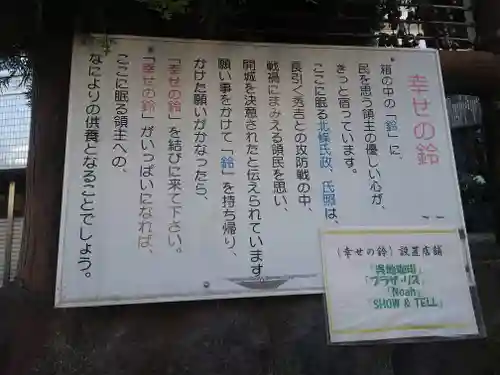 幸せの鈴
箱の中の「鈴」に、
民を思う領主の優しい心が、
きっと宿っています。
ここに眠る北條氏政、氏照は、
長引く秀吉との攻防戦の中、
戦禍にまみえる領民を思い、
開城を決意されたと伝えられています。
願い事をかけて「鈴」を持ち帰り、
かけた願いがかなったら、
「幸せの鈴」を結びに来て下さい。
「幸せの鈴」がいっぱいになれば、
ここに眠る領主への、
なによりの供養となることでしょう。
(幸せの鈴)設置店舗
「プラザ・リズ」
「Noah」
「SHOW & TELL」